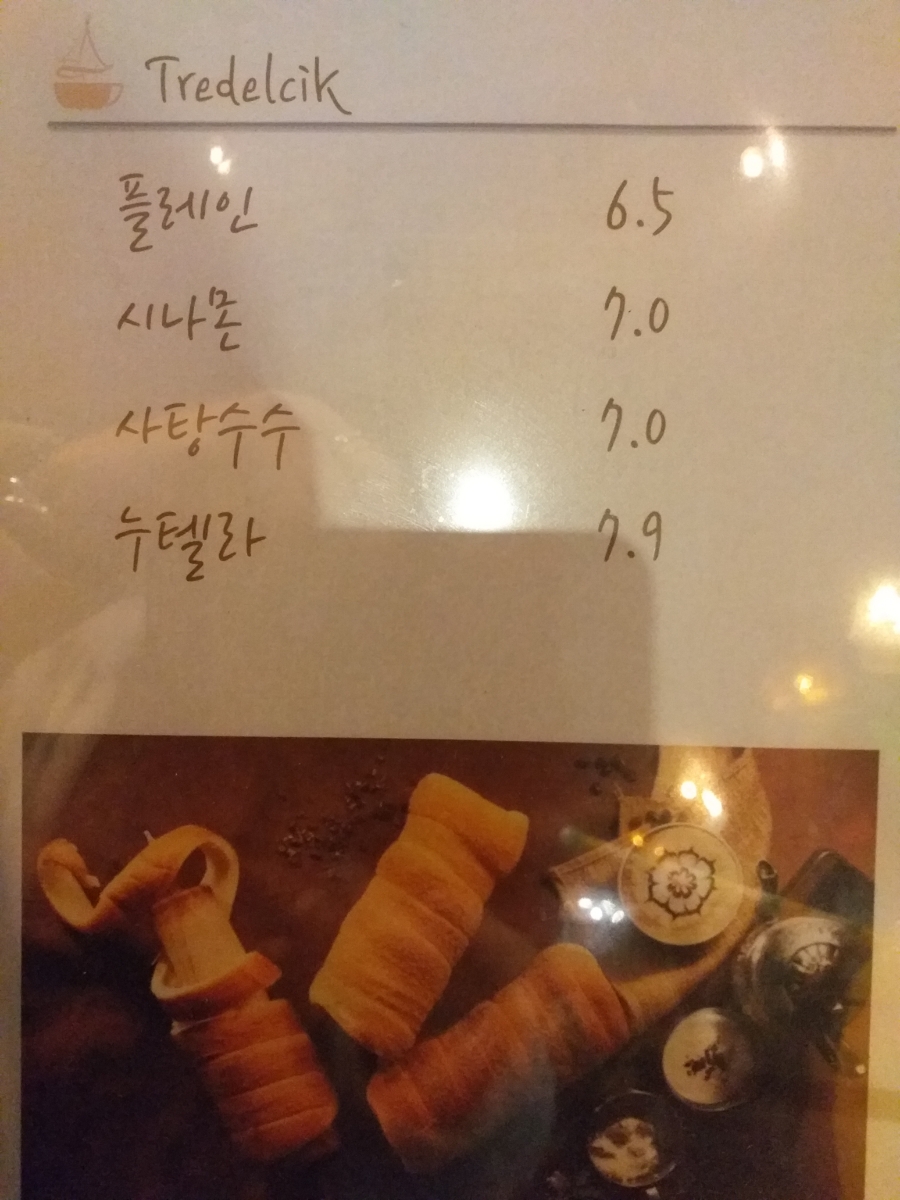 Tredelcik
플레인 6.5
시나몬 7.0
사탕수수 7.0
누텔라 7.9